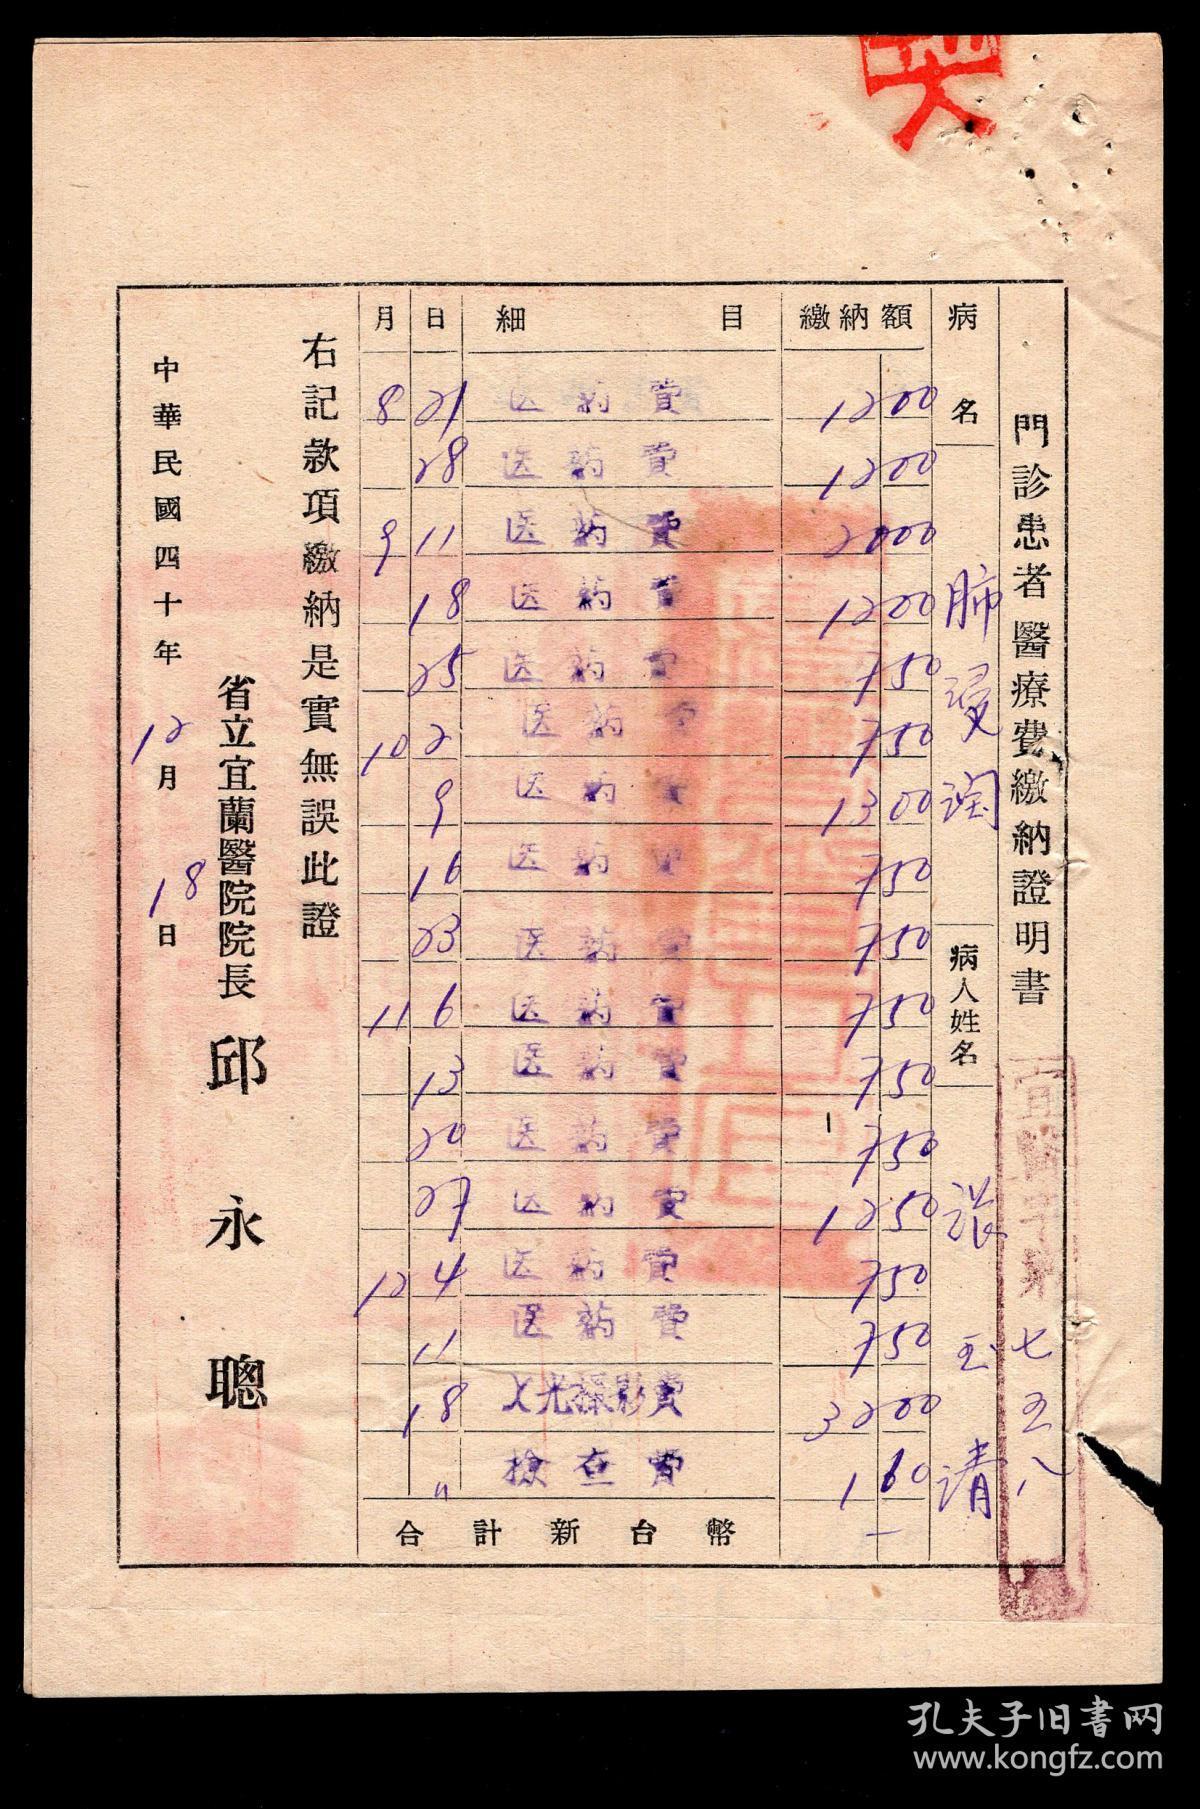 門診患者醫療費繳納證明書
宜醫字第七五八
病名
肺浸潤
病人姓名
張玉清
月 日 細目 繳納額
8 21 医药費 12 00
28 医药費 12 00
9 11 医药費 20 00
18 医药費 12 00
25 医药費 7 50
10 2 医药費 7 50
9 医药費 13 00
16 医药費 7 50
23 医药費 7 50
11 6 医药費 7 50
13 医药費 7 50
20 医药費 7 50
27 医药費 12 50
12 4 医药費 7 50
11 医药費 7 50
18 X光攝影費 32 00
〃 検查費 1 60
合計新台幣
右記款項繳納是實無誤此證
省立宜蘭醫院院長 邱永聰
中華民國四十年12月18日
孔夫子旧书网
www.kongfz.com